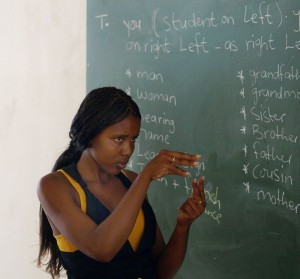 To you (student on Left). y
on right Left - as right Le
* man
* Woman
* hearing
* name
* grandfath
* grandmo
* sister
* Brother
* father
* cousin
* mother